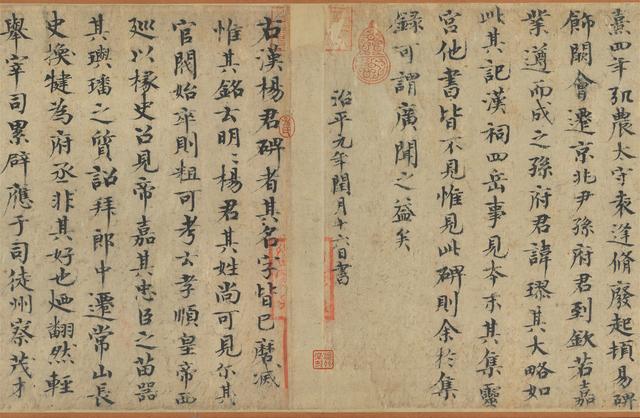 熹四年弘農太守袁逢脩廢起頓易碑
飾闕會遷京兆尹孫府君到欽若嘉
業遵而成之孫府君諱璆其大略如
此其記漢祠四岳事見本末其集靈
宮他書皆不見惟見此碑則余於集
録可謂廣聞之益矣
治平元年閏月十六日書
右漢楊君碑者其名字皆已磨滅
惟其銘云明明楊君其姓尚可見尔其
官閥始卒則粗可考云孝順皇帝西
巡以掾史召見帝嘉其忠臣之苗器
其璵璠之質詔拜郎中遷常山長
史換犍為府丞非其好也廼翻然輕
舉宰司累辟應于司徒州察茂才